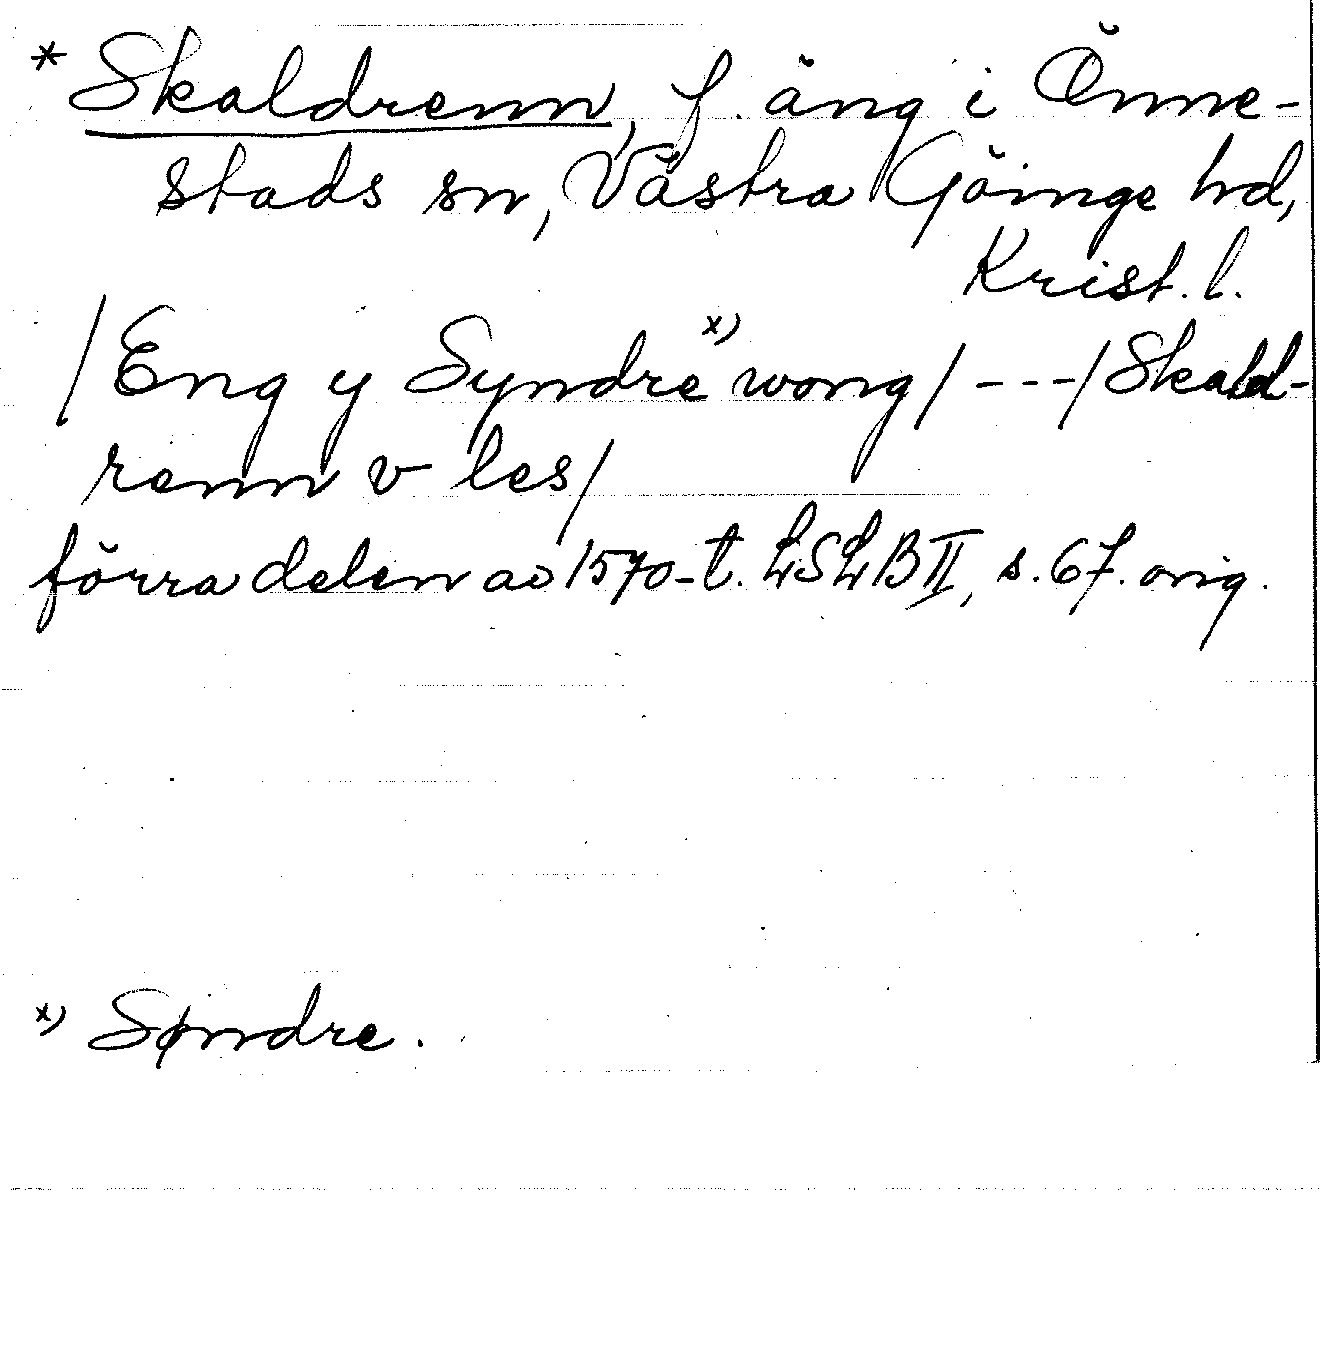 * Skaldrenn, f. äng i Önne-
stads sn, Västra Göinge hd,
Krist. l.
/Eng y Syndre x) wong/ ---/Skald-
renn v les/
förra delen av 1570-t. LSLB II, s. 67. orig.
x) Søndre.